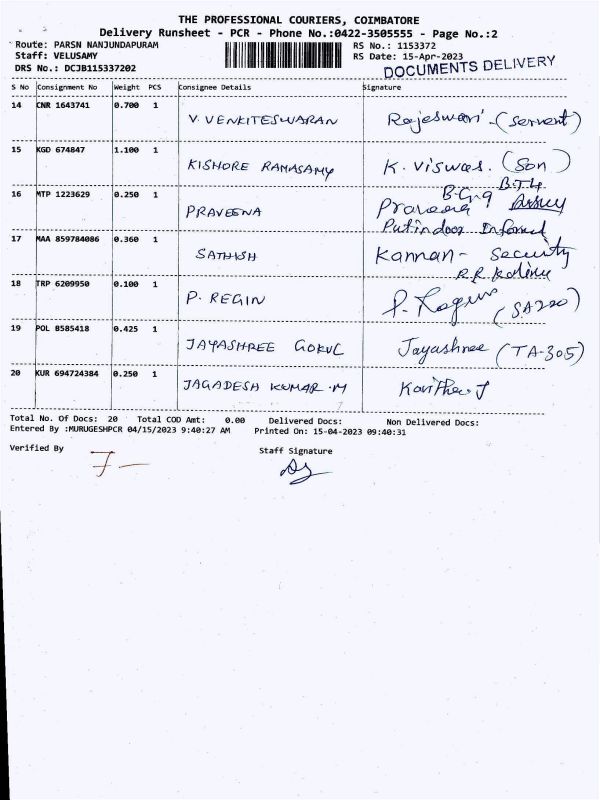 THE PROFESSIONAL COURIERS, COIMBATORE
Delivery Runsheet - PCR - Phone No.:0422-3505555 - Page No.:2
Route: PARSN NANJUNDAPURAM
Staff: VELUSAMY
DRS No.: DCJB115337202
RS No.: 1153372
RS Date: 15-Apr-2023
DOCUMENTS DELIVERY
S No Consignment No Weight PCS Consignee Details Signature
14 CNR 1643741 0.700 1
V. VENKITESWARAN Rajeswari - (Servent)
15 KGD 674847 1.100 1
KISHORE RAMASAMY K. Viswas. (Son)
16 MTP 1223629 0.250 1
PRAVEENA
Informed
17 MAA 859784086 0.360 1
SATHISH Kannan - Security
R.R.
18 TRP 6209950 0.100 1
P. REGIN P.
19 POL 8585418 0.425 1
JAYASHREE GOKUL Jayashree (TA-305)
20 KUR 694724384 0.250 1
JAGADESH KUMAR .M
Total No. Of Docs: 20 Total COD Amt: 0.00 Delivered Docs: Non Delivered Docs:
Entered By :MURUGESHPCR 04/15/2023 9:40:27 AM Printed On: 15-04-2023 09:40:31
Verified By Staff Signature